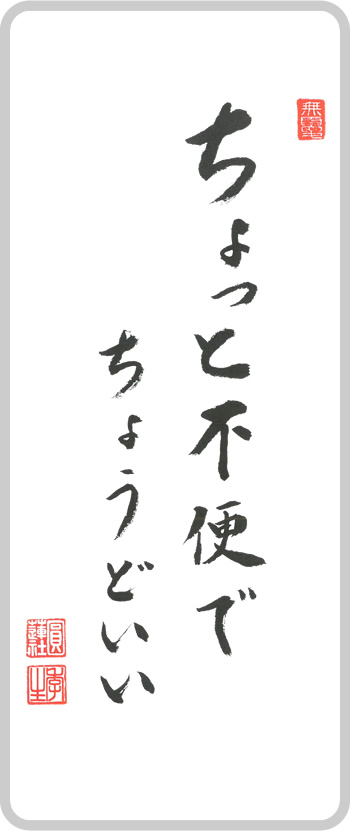 ちょっと不便で
ちょうどいい